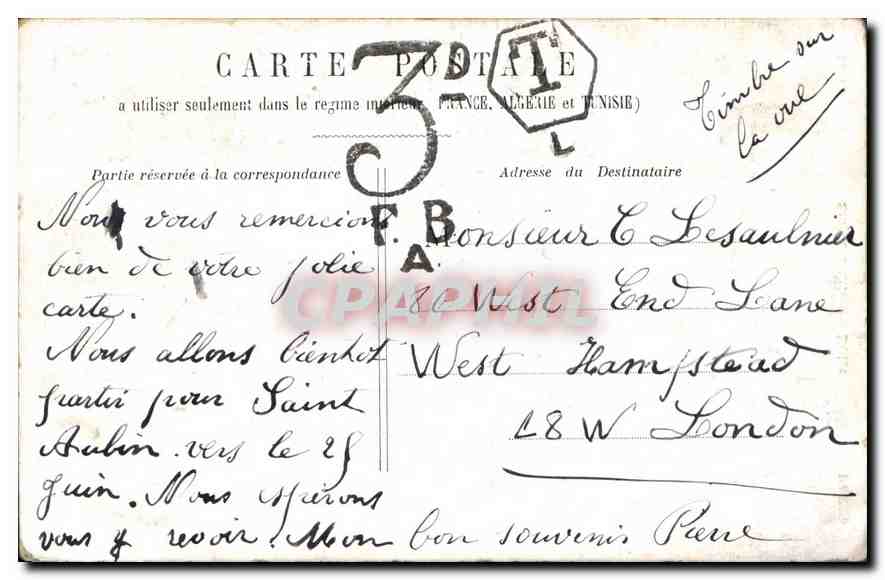 CARTE POSTALE
a utiliser seulement dans le regime intérieur (FRANCE, ALGERIE et TUNISIE)
3D
T
L
F.B
A.
Timbre sur
la vue
Partie réservée à la correspondance
Nous vous remercions
bien de votre jolie
carte.
Nous allons bienthot
partir pour Saint
Aubin vers le 25
Juin. Nous espérons
vous y revoir. Mon bon souvenir Pierre
Adresse du Destinataire
Monsieur C Lesaulnier
West End Lane
West Hampstead
W London
CPAPHIL